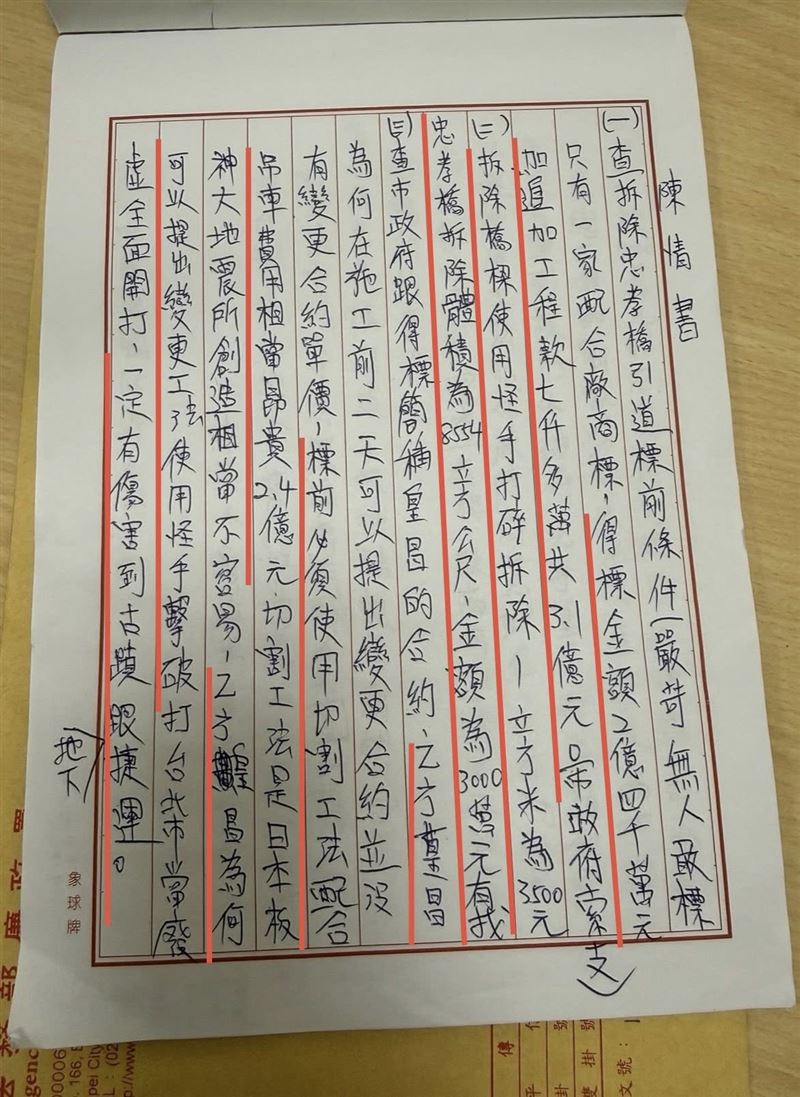 陳情書
(一)查拆除忠孝橋引道標前條件嚴苛,無人敢標
只有一家配合廠商標,得標金額2億四千萬元
加追加工程款七仟多萬共3.1億元 市政府索支
(二)拆除橋樑使用怪手打碎拆除1立方米為3500元
忠孝橋拆除體積為8554立方公尺,金額為3000萬元有找
(三)查市政府跟得標簡稱皇昌的合約,乙方皇昌
為何在施工前二天可以提出變更合約並沒
有變更合約單價,標前必須使用切割工法配合
吊車費用相當昂貴2.4億元,切割工法是日本板
神大地震所創造相當不容易,乙方皇昌為何
可以提出變更工法使用怪手擊破打台柴當廢
虛全面開打,一定有傷害到古蹟跟捷運。
地下
象球牌
部廉政署
gency
00006
166,
pei City
L:(02
http://www
傳
平信
掛號
雙掛號
文號: